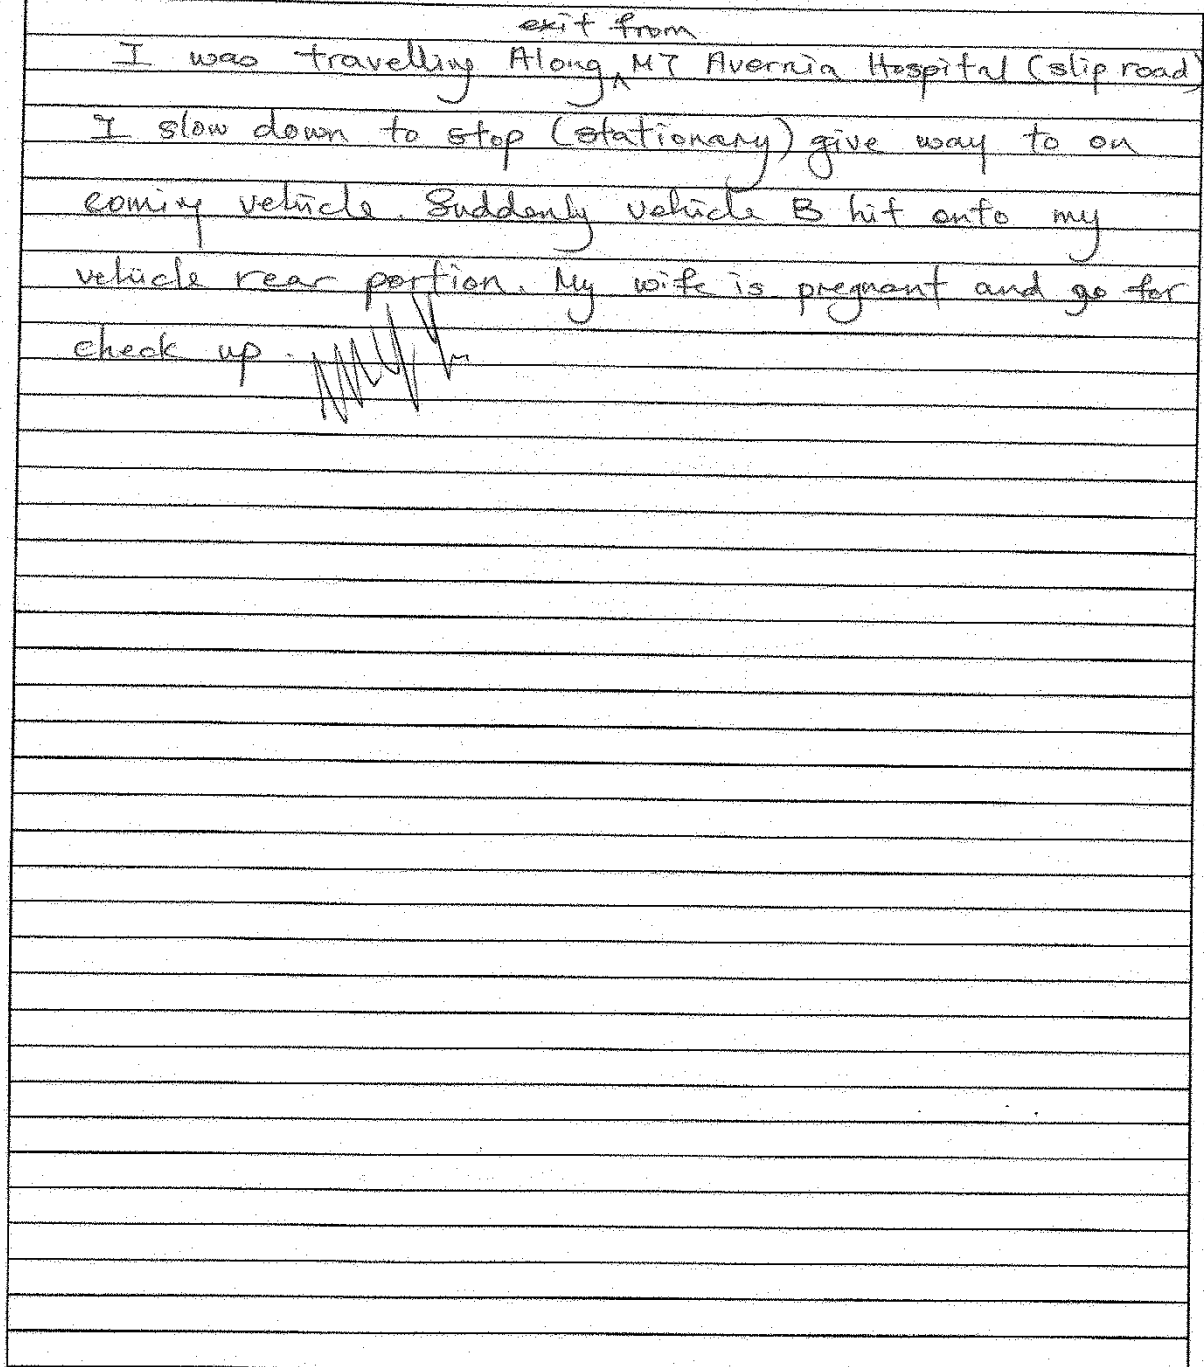 exit from
I was travelling Along ^ MT Avernia Hospital (slip road)
I slow down to stop (stationary) give way to on
coming vehicle. Suddenly vehicle B hit onto my
vehicle rear portion. My wife is pregnant and go for
check up.